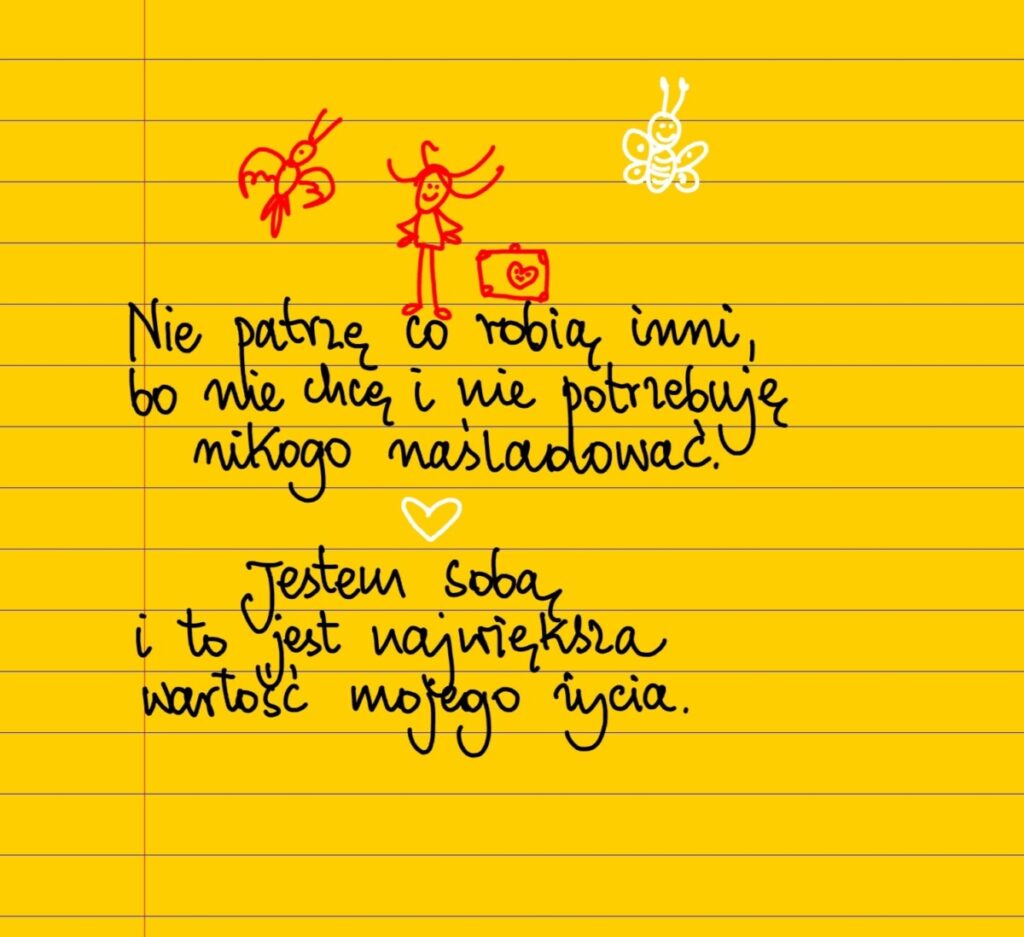 Nie patrzę co robią inni,
bo nie chcę i nie potrzebuję
nikogo naśladować.
Jestem sobą
i to jest największa
wartość mojego życia.